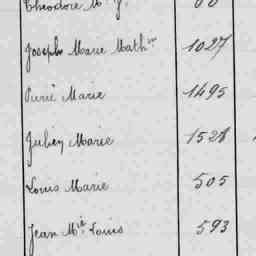 Théodore M
Joseph Marie Math^in 1027
Marie 1495
Julien Marie 1528
Louis Marie 505
Jean M^ie Louis 593